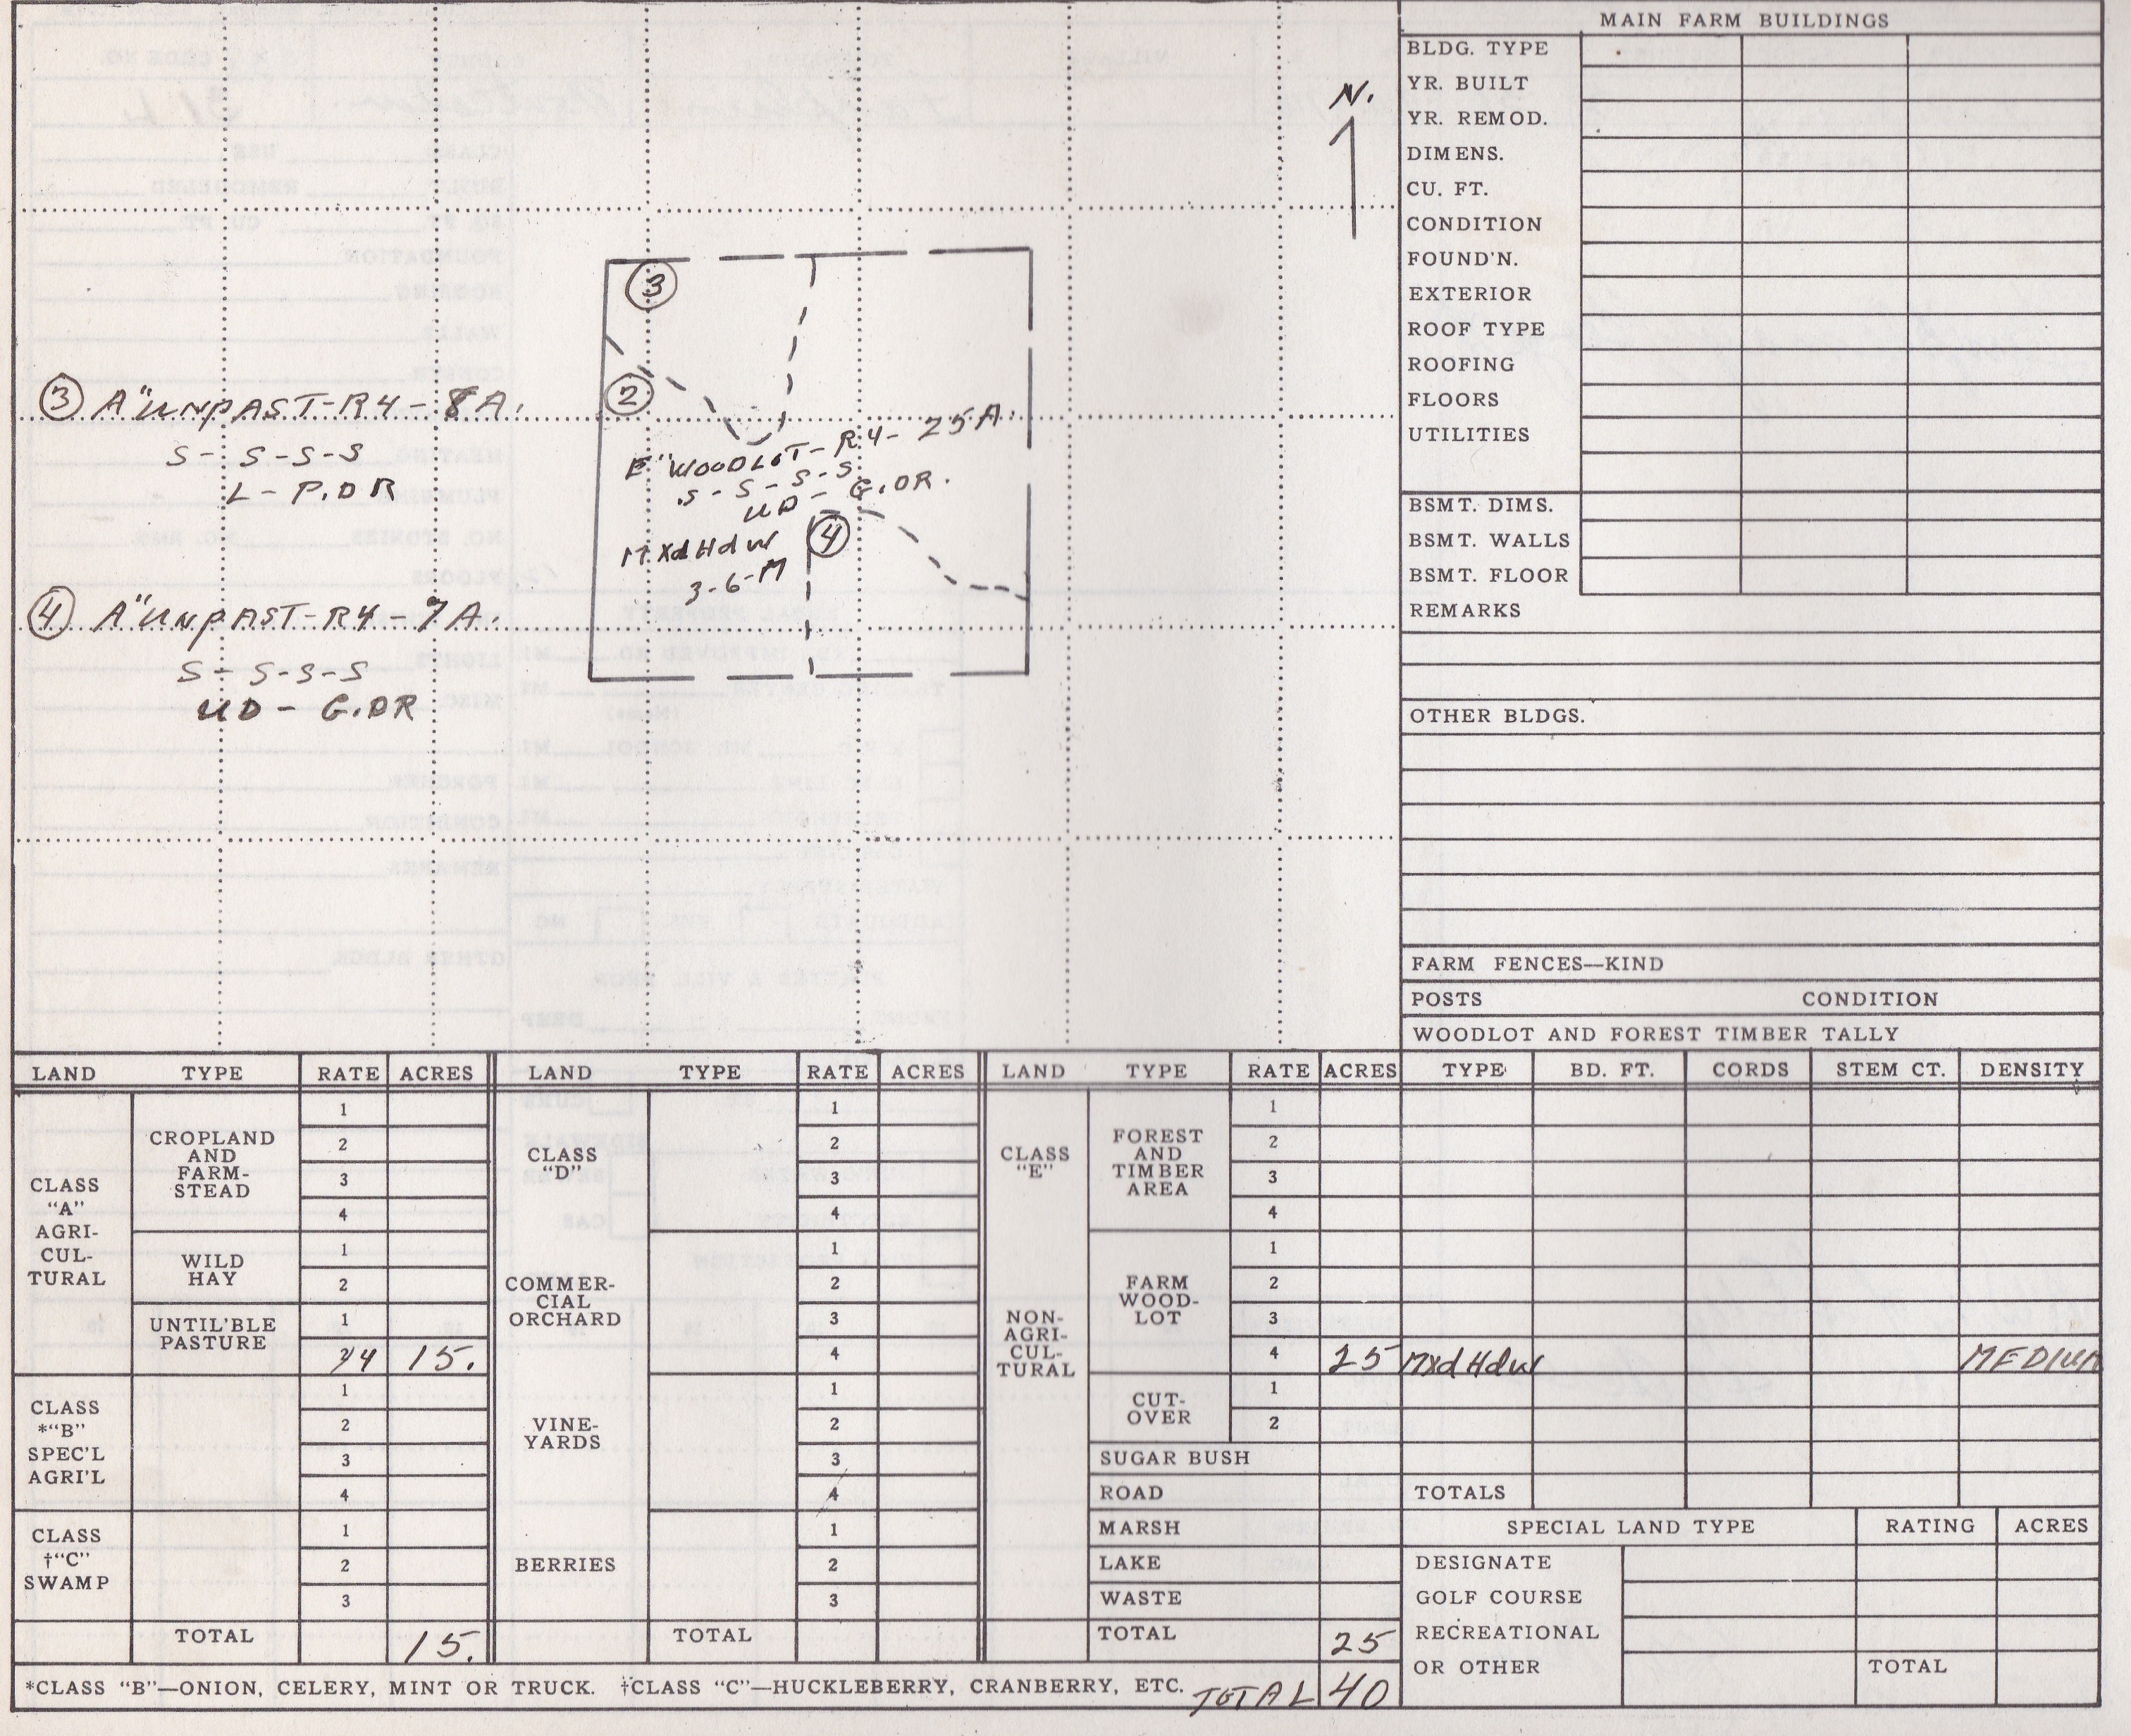 N.
③ A"UNPAST-R4-8A.
S-S-S-S
L-P.DR
④ A"UNPAST-R4-7A.
S-S-S-S
UD-G.DR
③
②
E"WOODLOT-R4-25A.
S-S-S-S
UD-G.DR.
MXdHdW
3-6-M
④
MAIN FARM BUILDINGS
BLDG. TYPE
YR. BUILT
YR. REMOD.
DIMENS.
CU. FT.
CONDITION
FOUND'N.
EXTERIOR
ROOF TYPE
ROOFING
FLOORS
UTILITIES
BSMT. DIMS.
BSMT. WALLS
BSMT. FLOOR
REMARKS
OTHER BLDGS.
FARM FENCES—KIND
POSTS CONDITION
WOODLOT AND FOREST TIMBER TALLY
LAND TYPE RATE ACRES
CLASS
"A"
AGRI-
CUL-
TURAL
CROPLAND
AND
FARM-
STEAD
1
2
3
4
WILD
HAY
1
2
UNTIL'BLE
PASTURE
1
4 15.
CLASS
*"B"
SPEC'L
AGRI'L
1
2
3
4
CLASS
†"C"
SWAMP
1
2
3
TOTAL 15.
LAND TYPE RATE ACRES
CLASS
"D"
1
2
3
4
COMMER-
CIAL
ORCHARD
1
2
3
4
VINE-
YARDS
1
2
3
4
BERRIES
1
2
3
TOTAL
LAND TYPE RATE ACRES
CLASS
"E"
NON-
AGRI-
CUL-
TURAL
FOREST
AND
TIMBER
AREA
1
2
3
4
FARM
WOOD-
LOT
1
2
3
4 25
CUT-
OVER
1
2
SUGAR BUSH
ROAD
MARSH
LAKE
WASTE
TOTAL 25
TYPE BD. FT. CORDS STEM CT. DENSITY
MXdHdW MEDIUM
TOTALS
SPECIAL LAND TYPE RATING ACRES
DESIGNATE
GOLF COURSE
RECREATIONAL
OR OTHER
TOTAL
*CLASS "B"—ONION, CELERY, MINT OR TRUCK. †CLASS "C"—HUCKLEBERRY, CRANBERRY, ETC. TOTAL 40